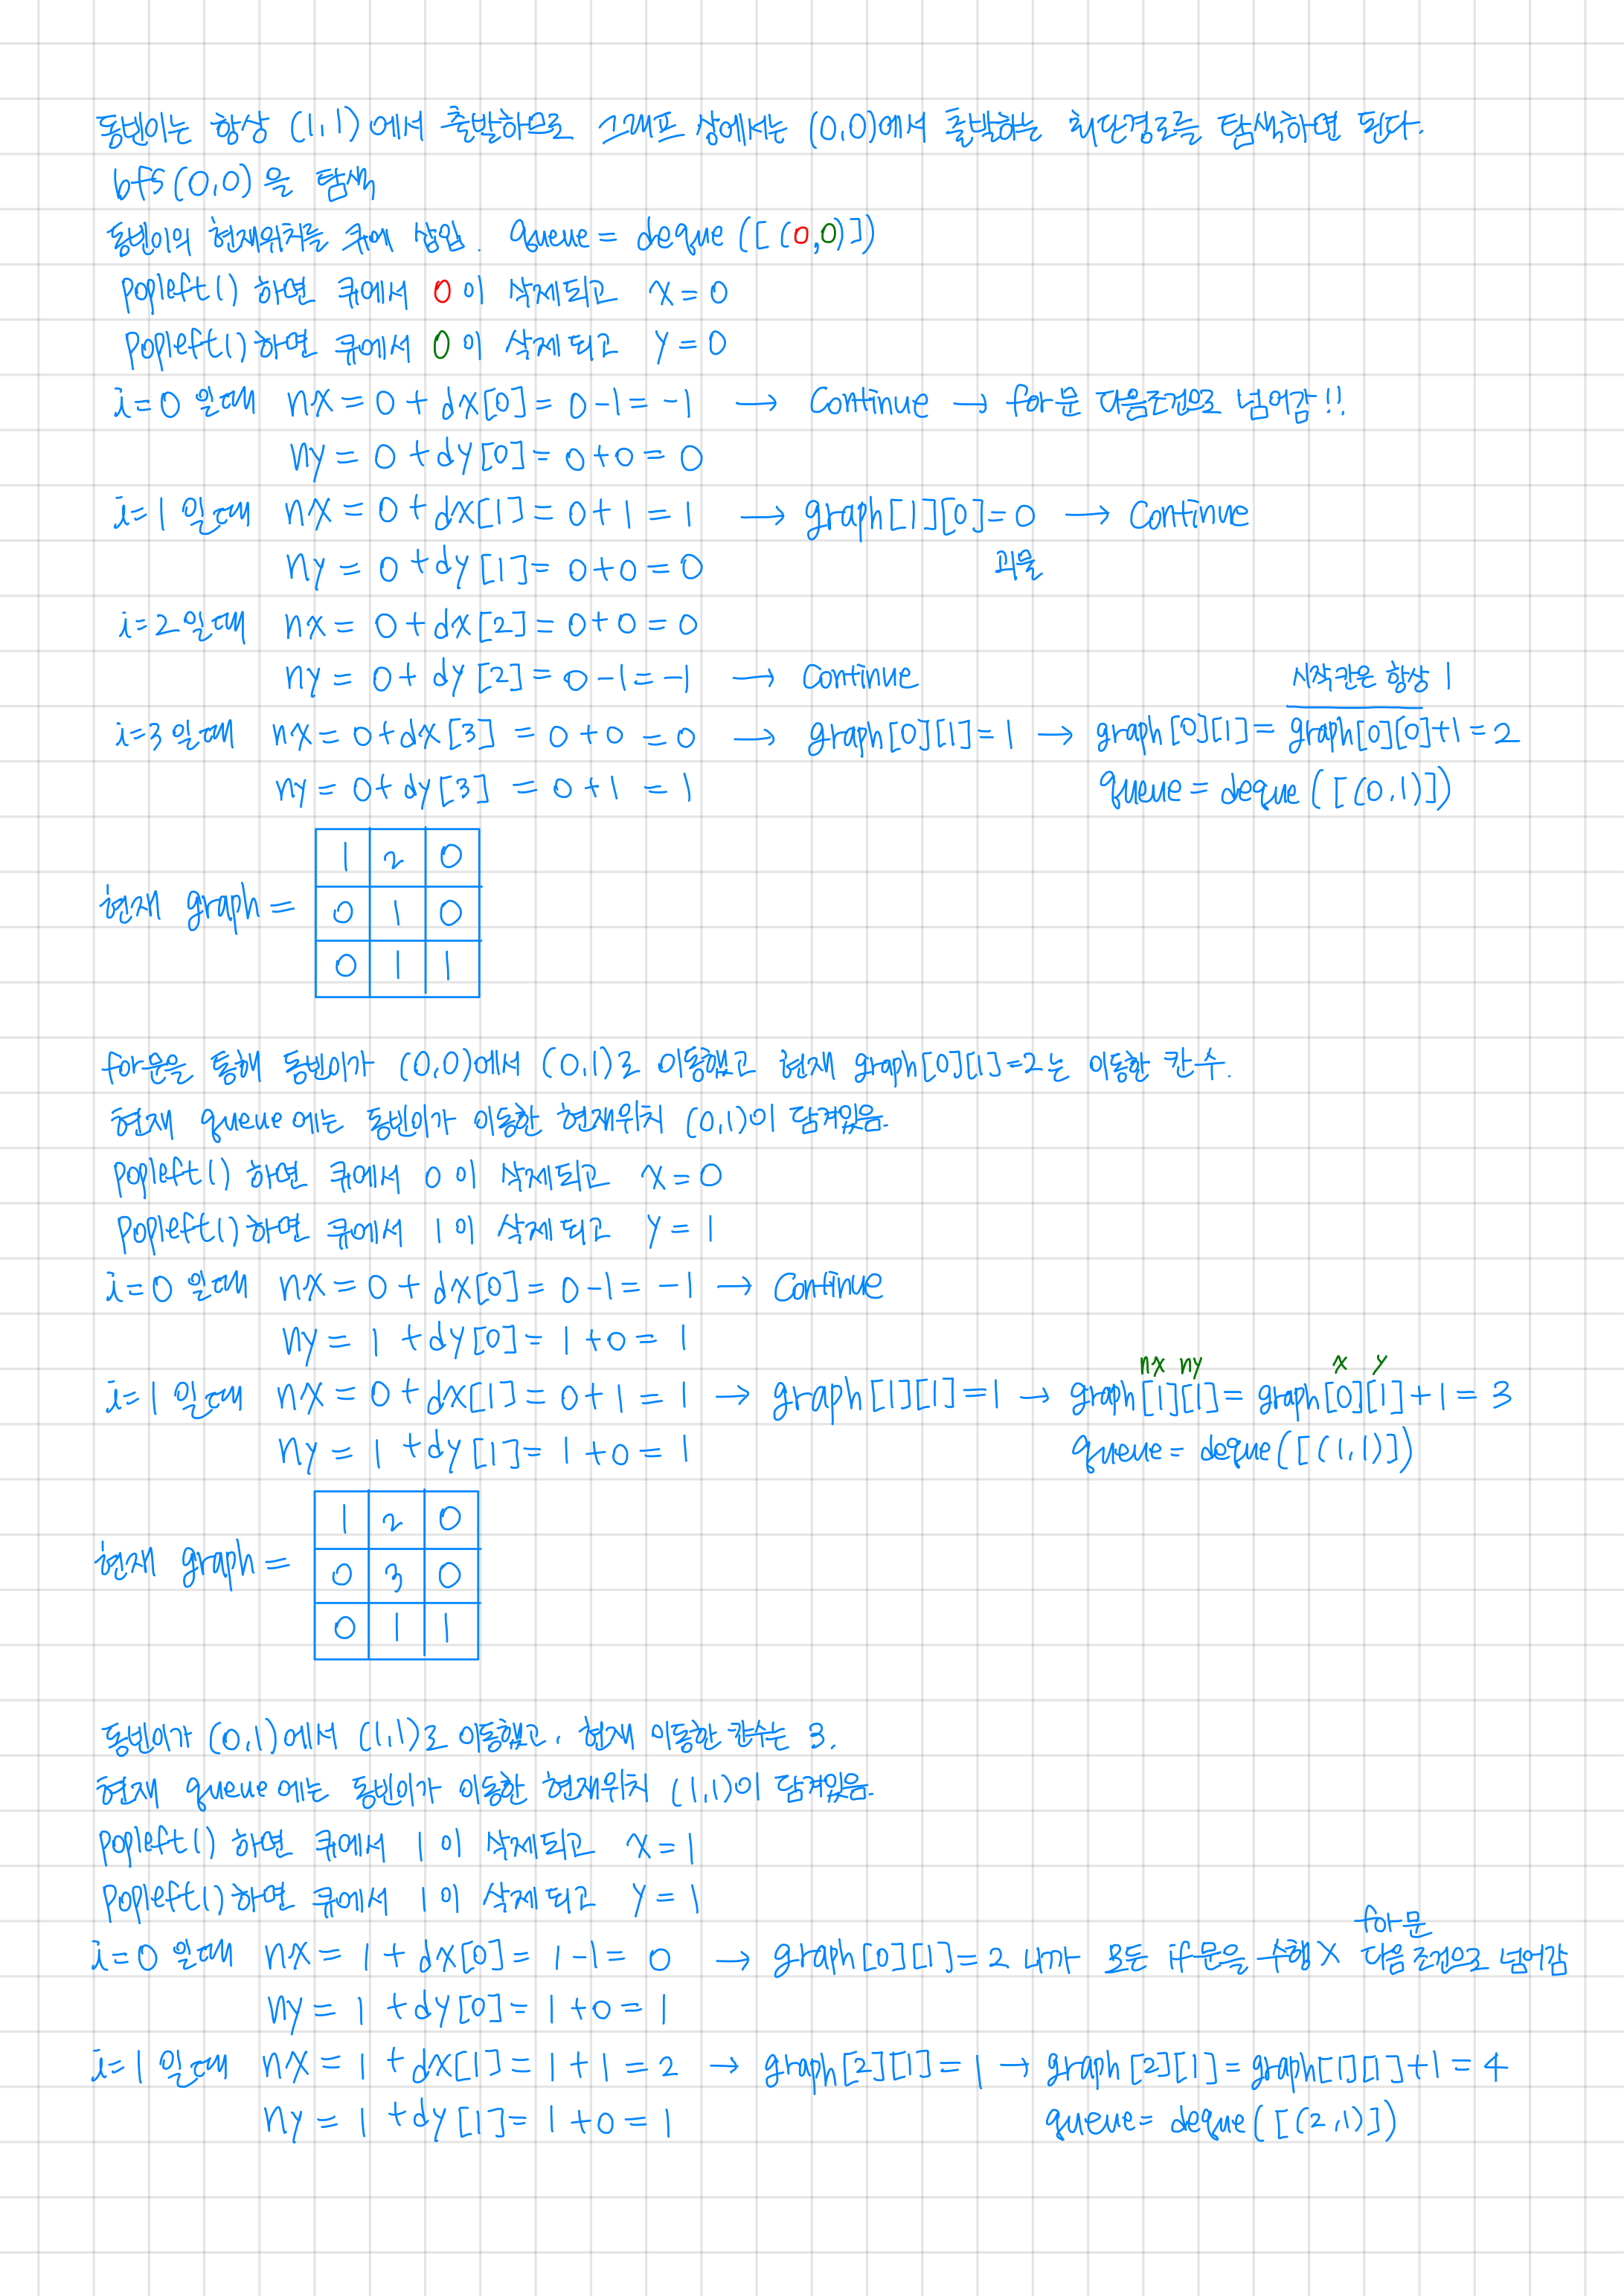 동빈이는 항상 (1,1)에서 출발하므로 그래프 상에서는 (0,0)에서 출발하는 최단경로를 탐색하면 된다.
bfs(0,0)을 탐색
동빈이의 현재위치를 큐에 삽입. queue = deque([(0,0)])
popleft() 하면 큐에서 0이 삭제되고 x=0
popleft() 하면 큐에서 0이 삭제되고 y=0
i=0 일때 nx = 0 + dx[0] = 0-1 = -1 → Continue → for문 다음조건으로 넘어감!!
ny = 0 + dy[0] = 0+0 = 0
i=1 일때 nx = 0 + dx[1] = 0+1 = 1 → graph[1][0]=0 → Continue
ny = 0 + dy[1] = 0+0 = 0 괴물
i=2 일때 nx = 0 + dx[2] = 0+0 = 0
ny = 0 + dy[2] = 0-1 = -1 → Continue 시작칸은 항상 1
i=3 일때 nx = 0+dx[3] = 0+0 = 0 → graph[0][1]=1 → graph[0][1] = graph[0][0]+1 = 2
ny = 0+dy[3] = 0+1 = 1 queue = deque([(0,1)])
1 2 0
현재 graph = 0 1 0
0 1 1
for문을 통해 동빈이가 (0,0)에서 (0,1)로 이동했고 현재 graph[0][1]=2는 이동한 칸수.
현재 queue에는 동빈이가 이동한 현재위치 (0,1)이 담겨있음.
popleft() 하면 큐에서 0이 삭제되고 x=0
popleft() 하면 큐에서 1이 삭제되고 y=1
i=0 일때 nx = 0 + dx[0] = 0-1 = -1 → Continue
ny = 1 + dy[0] = 1+0 = 1
nx ny x y
i=1 일때 nx = 0 + dx[1] = 0+1 = 1 → graph[1][1]=1 → graph[1][1] = graph[0][1]+1 = 3
ny = 1 + dy[1] = 1+0 = 1 queue = deque([(1,1)])
1 2 0
현재 graph = 0 3 0
0 1 1
동빈이가 (0,1)에서 (1,1)로 이동했고, 현재 이동한 칸수는 3.
현재 queue에는 동빈이가 이동한 현재위치 (1,1)이 담겨있음.
popleft() 하면 큐에서 1이 삭제되고 x=1
popleft() 하면 큐에서 1이 삭제되고 y=1
for문
i=0 일때 nx = 1 + dx[0] = 1-1 = 0 → graph[0][1]=2 니까 모든 if문을 수행X 다음 조건으로 넘어감
ny = 1 + dy[0] = 1+0 = 1
i=1 일때 nx = 1 + dx[1] = 1+1 = 2 → graph[2][1]=1 → graph[2][1] = graph[1][1]+1 = 4
ny = 1 + dy[1] = 1+0 = 1 queue = deque([(2,1)])